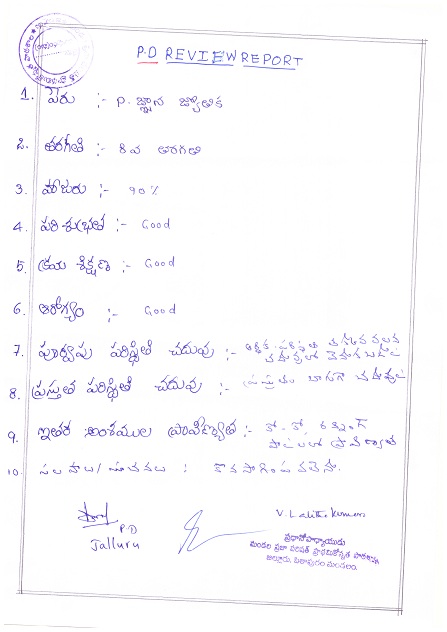 P.D REVIEW REPORT
1. పేరు :- P. జ్ఞాన జ్యోతిక
2. తరగతి :- 8 వ తరగతి
3. హాజరు :- 90%
4. పరిశుభ్రత :- Good
5. క్రమ శిక్షణ :- Good
6. ఆరోగ్యం :- Good
7. పూర్వపు పరిస్థితి చదువు :-
8. ప్రస్తుత పరిస్థితి చదువు :- ప్రస్తుతం బాగుగా
9. ఇతర అంశముల ప్రావీణ్యత :- ఖో-ఖో,
10. సలహాలు/సూచనలు : కొనసాగింపవలెను.
P.D
Jalluru
V. Lalitha Kumari
ప్రధానోపాధ్యాయుడు
మండల ప్రజా పరిషత్ ప్రాథమికోన్నత పాఠశాల
జల్లూరు, పిఠాపురం మండలం.